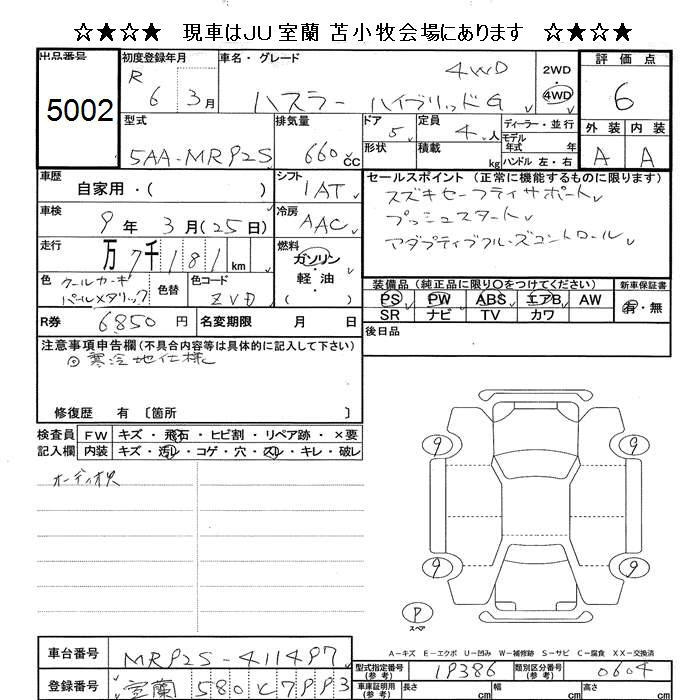 ☆★☆★ 現車はJU室蘭 苫小牧会場にあります ☆★☆★
出品番号 初度登録年月 車名・グレード 評価点
5002 R 6 3月 ハスラー ハイブリッドG 4WD 2WD 4WD 6
型式 排気量 ドア 定員 ディーラー・並行 外装 内装
5AA-MR92S 660cc 5 4人 モデル 年式 年 A A
形状 積載 kg ハンドル 左・右
車歴 自家用・( ) シフト 1AT セールスポイント (正常に機能するものに限ります)
スズキセーフティサポート
プッシュスタート
アダプティブクルーズコントロール
車検 9年3月(25日) 冷房 AAC
走行 万7千181km 燃料 ガソリン・軽油( )
色 クールカーキパールメタリック 色替 色コード ZVD
装備品 (純正品に限り○をつけてください) 新車保証書
PS PW ABS エアB AW 有・無
SR ナビ TV カワ
R券 6850円 名変期限 月 日 後日品
注意事項申告欄(不具合内容等は具体的に記入して下さい)
◎寒冷地仕様
修復歴 有 〔箇所 〕
検査員 FW キズ・飛石・ヒビ割・リペア跡・×要
記入欄 内装 キズ・汚レ・コゲ・穴・スレ・キレ・破レ
オーディオ欠
9 9
9 9
P
スペア
A-キズ E-エクボ U-凹み W-補修跡 S-サビ C-腐食 XX-交換済
車台番号 MR92S-411497
型式指定番号(参考) 19386 類別区分番号(参考) 0604
登録番号 室蘭 580 く 7993
車車証明用(参考) 長さ cm 幅 cm 高さ cm